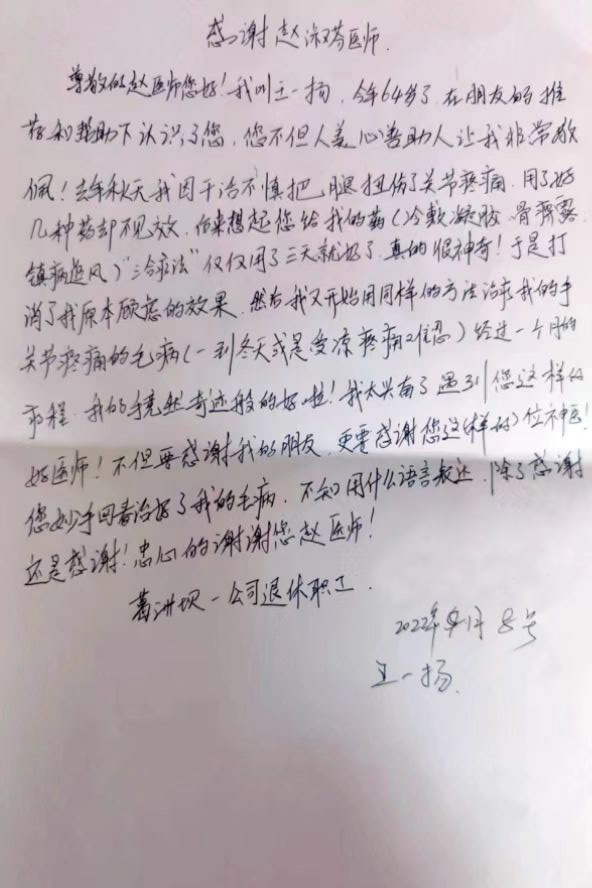 感谢赵淑芬医师.
尊敬的赵医师您好!我叫王一扬,今年64岁了,在朋友的推
荐和帮助下认识了您,您不但人美心善助人让我非常敬
佩!去年秋天我因干活不慎把腿扭伤了关节疼痛,用了好
几种药却不见效,后来想起您给我的药(冷敷凝胶、骨痹露
镇痛追风)"三合疗法"仅仅用了三天就好了,真的很神奇!于是打
消了我原本顾虑的效果,然后我又开始用同样的方法治疗我的手
关节疼痛的毛病(一到冬天或是受凉疼痛)经过一个月的
疗程,我的手竟然奇迹般的好啦!我太兴奋了遇到您这样的
好医师!不但要感谢我的朋友,更要感谢您这样的一位神医!
您妙手回春治好了我的毛病,不知用什么语言叙述,除了感谢
还是感谢!忠心的谢谢您赵医师!
葛洲坝一公司退休职工.
2022年 月8号
王一扬.